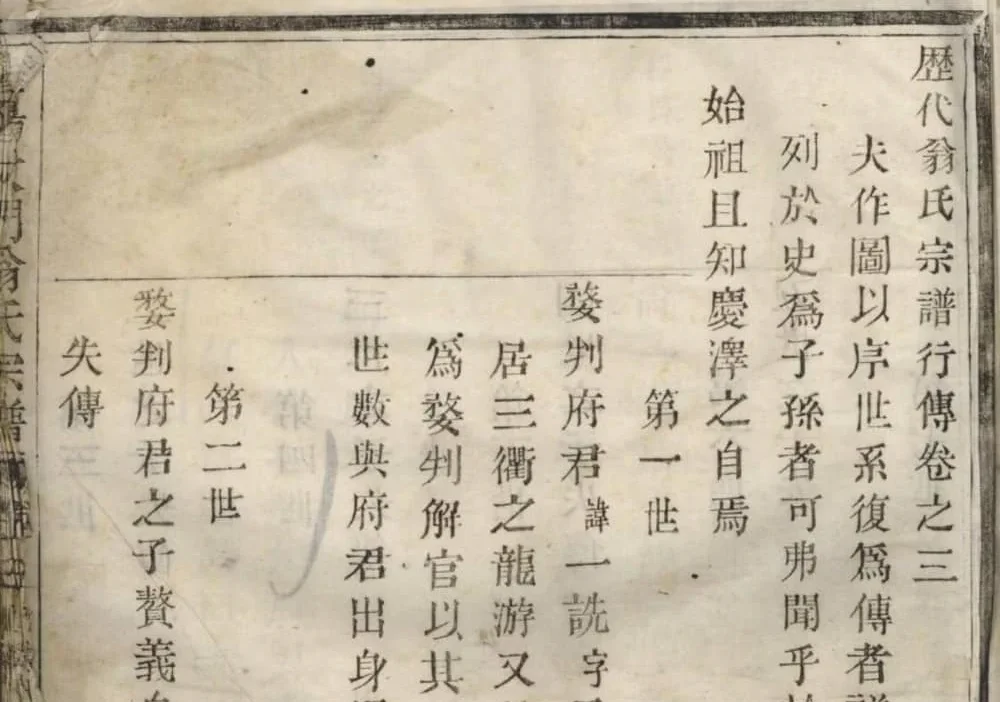 歷代翁氏宗譜行傳卷之三
夫作圖以序世系復爲傳者
列於史爲子孫者可弗聞乎
始祖且知慶澤之自焉
第一世
婺判府君諱一詵字
居三衢之龍游又
爲婺判解官以其
世數與府君出身
第二世
婺判府君之子贅義
失傳
門翁氏宗譜